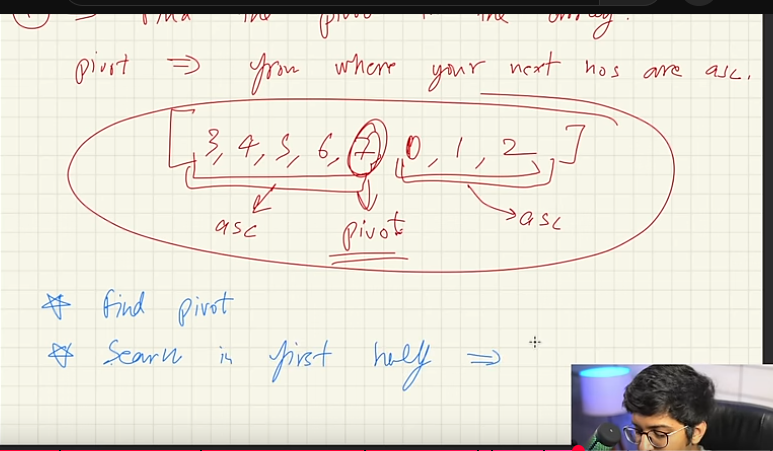 ① ⇒ Find the pivot in the array.
pivot ⇒ from where your next nos are asc.
[3, 4, 5, 6, 7, 0, 1, 2]
asc pivot asc
☆ find pivot
☆ Search in first half ⇒